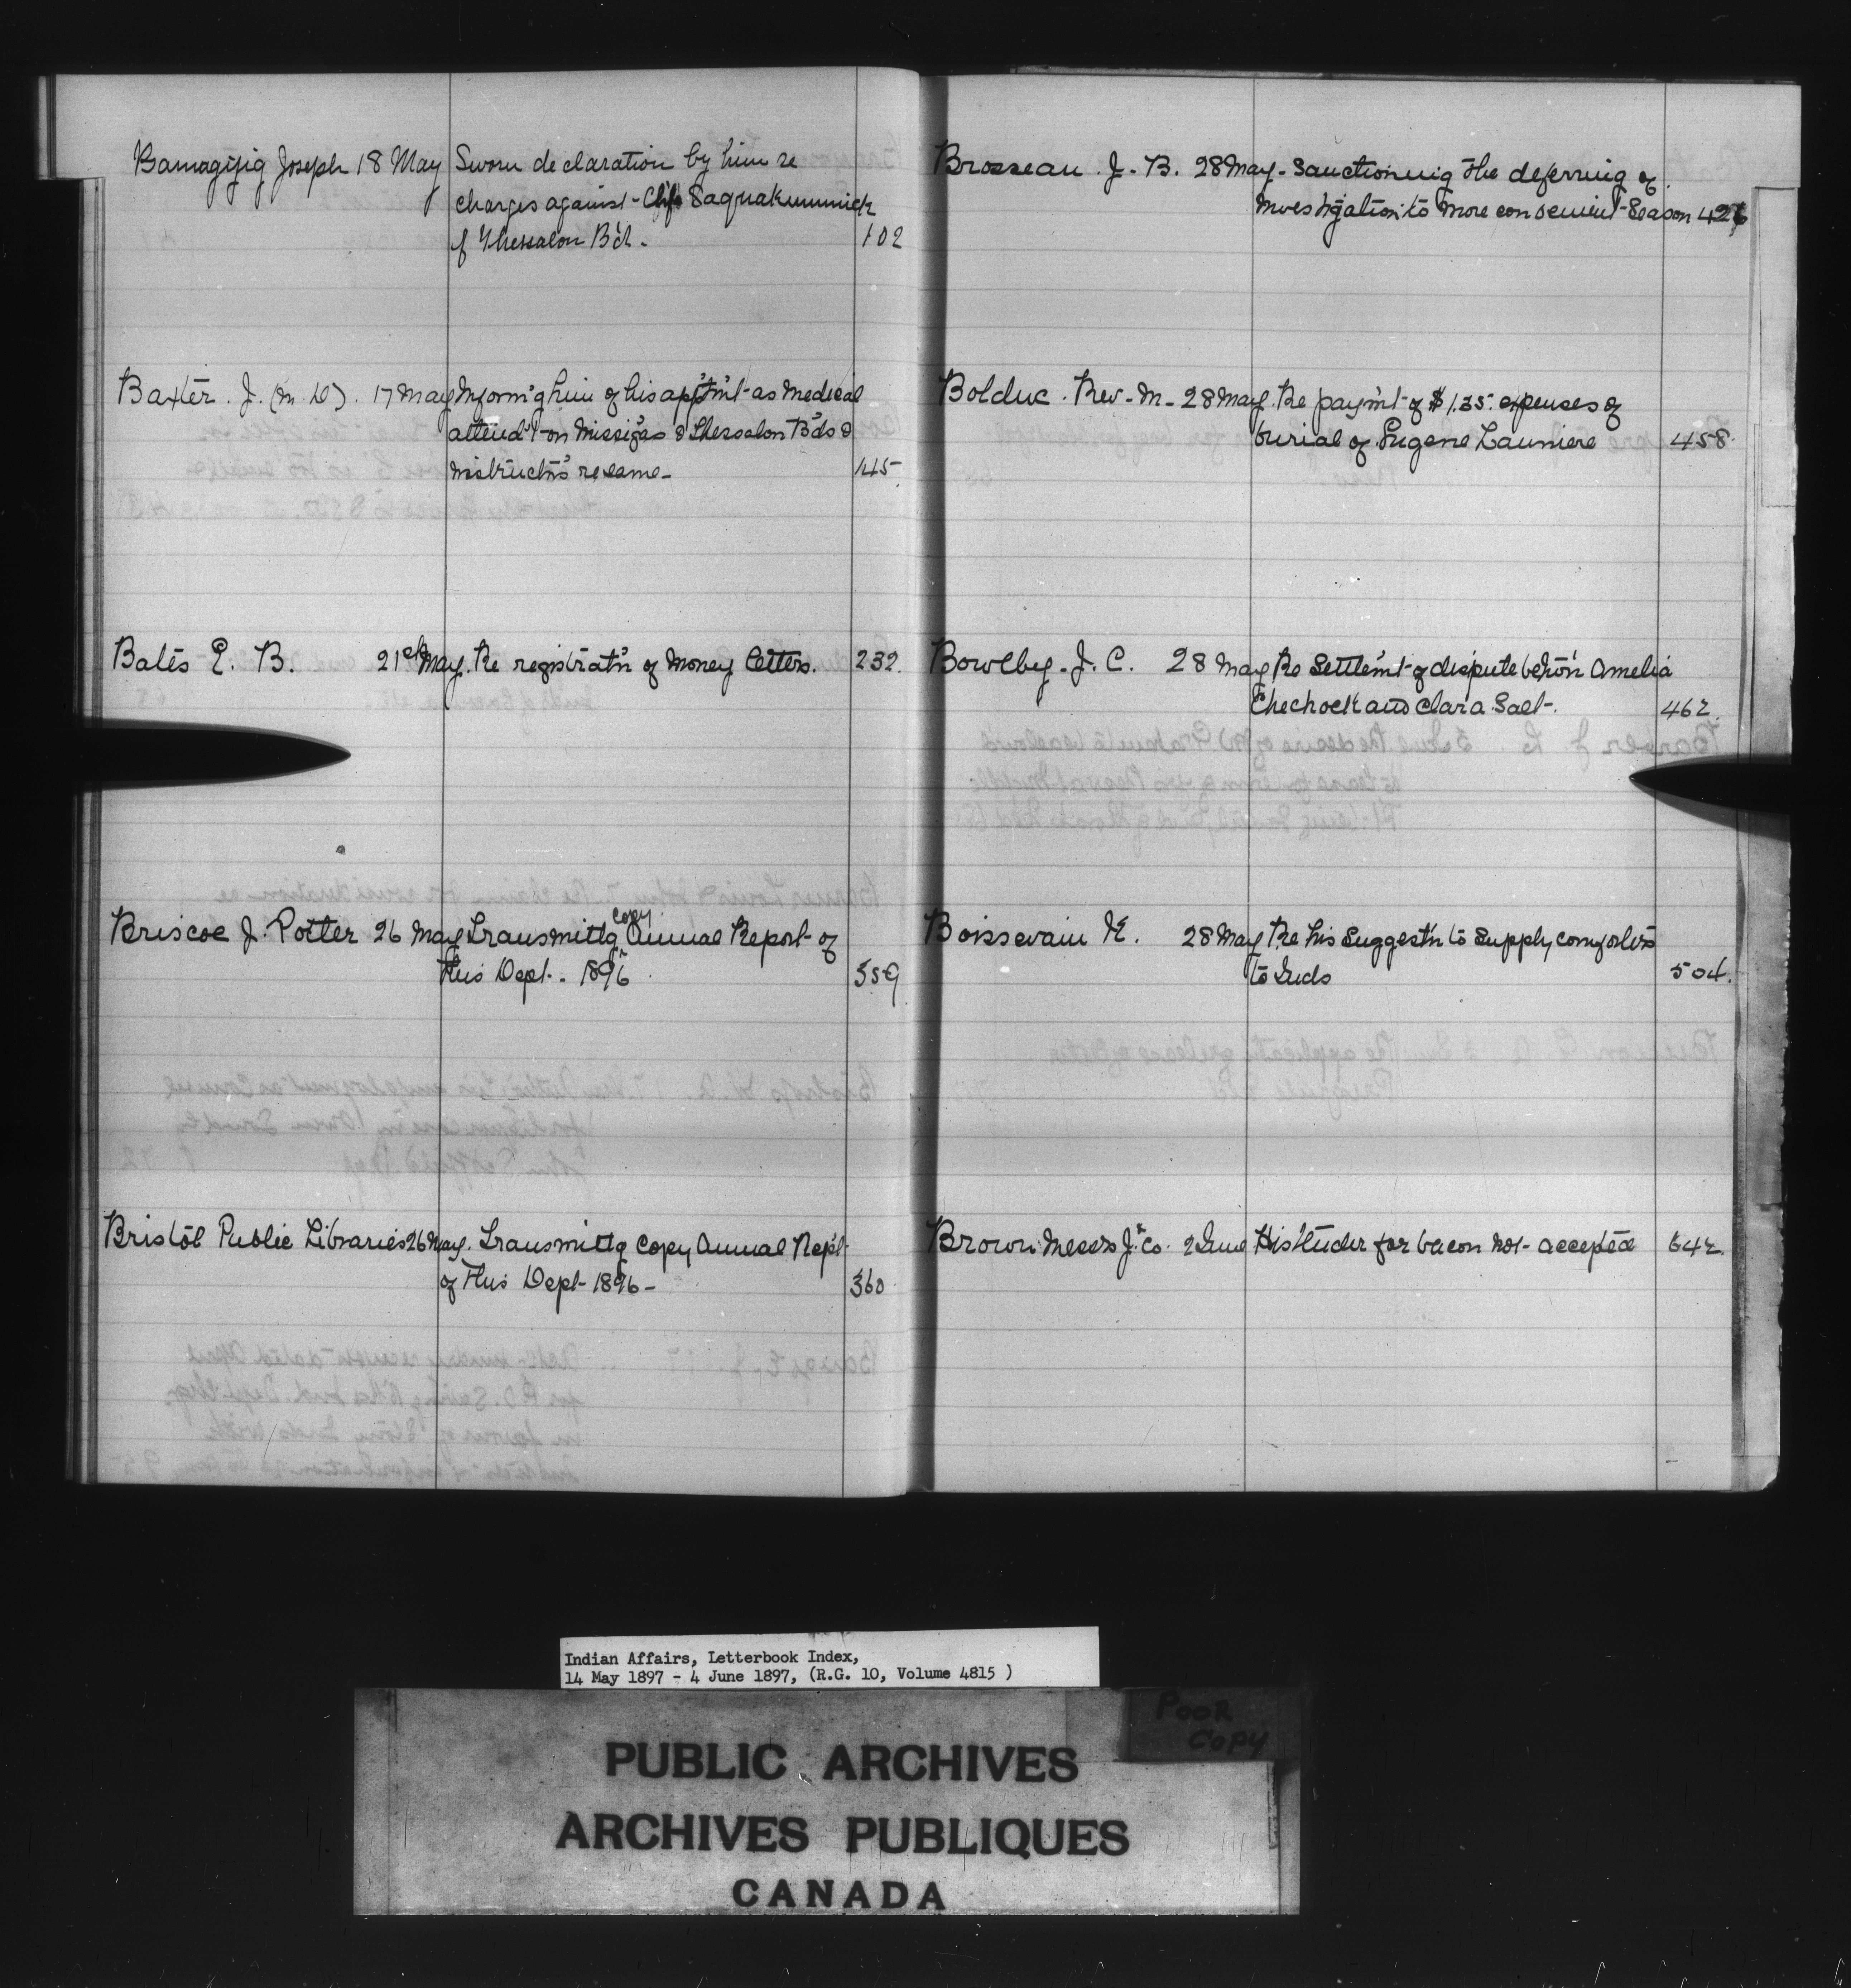 Bamagijig Joseph 18 May Sworn declaration by him re
charges against Chf Saquakummick
of Thessalon Bd. 102
Baxter. J. (M.D). 17 May Inform'g him of his app'tm't as Medical
attend't on Missis'gas & Thessalon B'ds &
instruct'ns re same - 145
Bates E. B. 21st May. Re registrat'n of Money letters. 232.
Briscoe J. Potter 26 May Transmittg Copy Annual Report of
this Dept. 1896. 359
Bristol Public Libraries 26 May. Transmittg Copy Annual Rep't
of this Dept 1896 - 360
Brosseau. J. B. 28 May. Sanctioning the deferring of
investigation to more convenient Season 426
Bolduc. Rev. M. 28 May. Re paym't of $1.35. expenses of
burial of Eugene Launiere 458.
Bowlby. J. C. 28 May Re Settlem't of dispute betw'n Amelia
Chechock and Clara Salt. 462.
Boissevain K. 28 May Re his Suggest'n to Supply comforters
to Inds 504.
Brown Messrs J. & Co. 2 June His tender for bacon not accepted 642.
Indian Affairs, Letterbook Index,
14 May 1897 - 4 June 1897, (R.G. 10, Volume 4815 )
POOR
COPY
PUBLIC ARCHIVES
ARCHIVES PUBLIQUES
CANADA